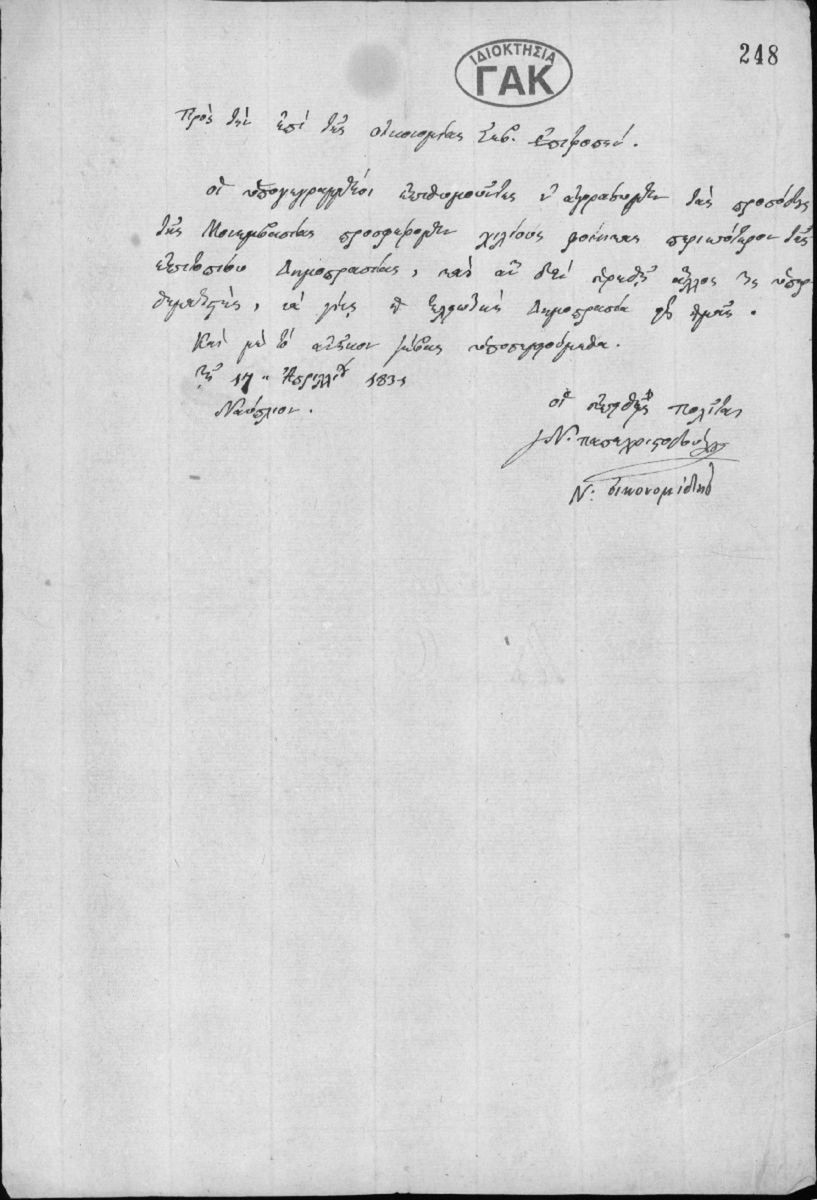 ΙΔΙΟΚΤΗΣΙΑ
ΓΑΚ
248
Πρὸς τὴν ἐπὶ τῆς οἰκονομίας Σεβ. Ἐπιτροπήν.
οἱ ὑπογεγραμμένοι ἐπιθυμοῦντες ν' ἀγοράσωμεν τὰς προσόδους
τῆς Μονεμβασίας προσφέρομεν χιλίους φοίνικας περισσότερον τῆς
ἐπιτοπίου Δημοπρασίας, καὶ ἂν δὲν εὑρεθῇ ἄλλος τις ὑπερ-
θεματιστής, νὰ γίνῃ ἡ Δημοπρασία εἰς ἡμᾶς.
Καὶ μὲ τὸ ἀνῆκον σέβας ὑποσημειούμεθα.
τῇ 17 Ἀπριλλίου 1831
Ναύπλιον.
οἱ εὐπειθεῖς πολῖται
Ν. οἰκονομίδης